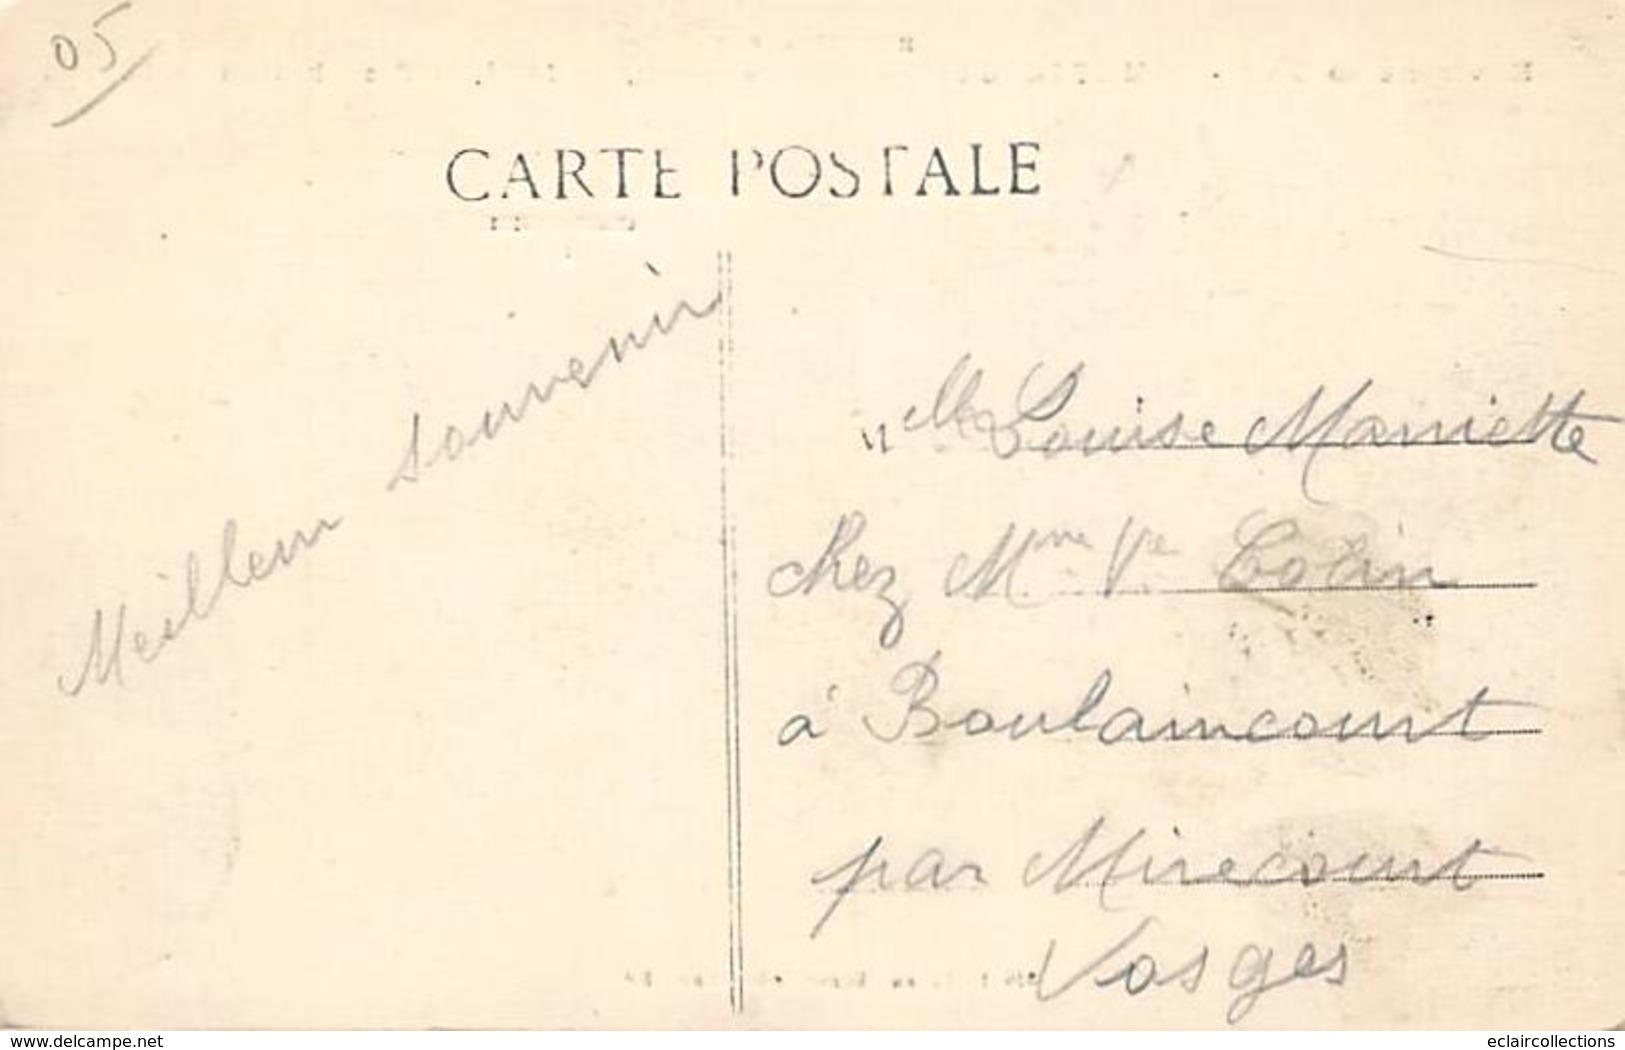 05
CARTE POSTALE
Meilleur souvenir
Mlle Louise Marriette
chez Mme Vve Colin
à Boulaincourt
par Mirecourt
Vosges
www.delcampe.net
eclaircollections